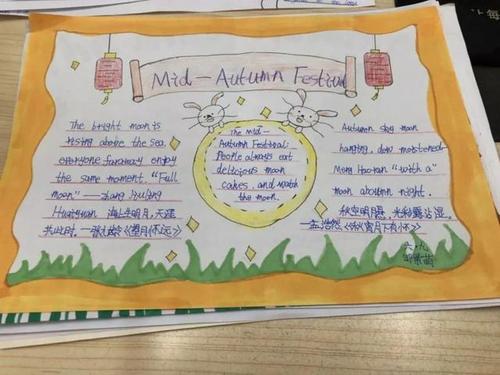 Mid-Autumn Festival
The bright moon is
rising above the sea.
everyone faraway enjoy
the same moment. "Full
moon" — zhang jiuling
海上生明月,天涯
共此时.一张九龄《望月怀远》
The mid-
Autumn Festival:
People always eat
delicious moon
cakes. and watch
the moon.
Autumn sky moon
hanging, dew moistened-
Meng Haoran "with a
moon autumn night.
秋空明月悬,光彩露沾湿.
—孟浩然《秋宵月下有怀》
六·九